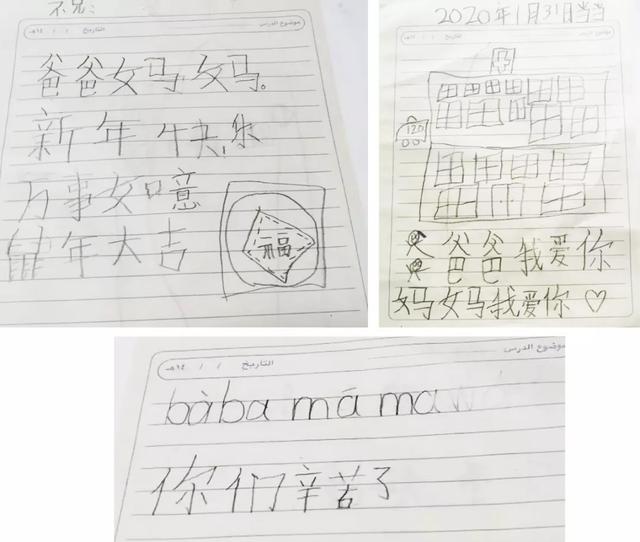 موضوع الدرس التاريخ / / ١٤هـ
爸爸妈妈。
新年快乐
万事如意
鼠年大吉
福
2020年1月31日当当
120
爸爸我爱你
妈妈我爱你♡
موضوع الدرس التاريخ / / ١٤هـ
bàba mā ma
你们辛苦了